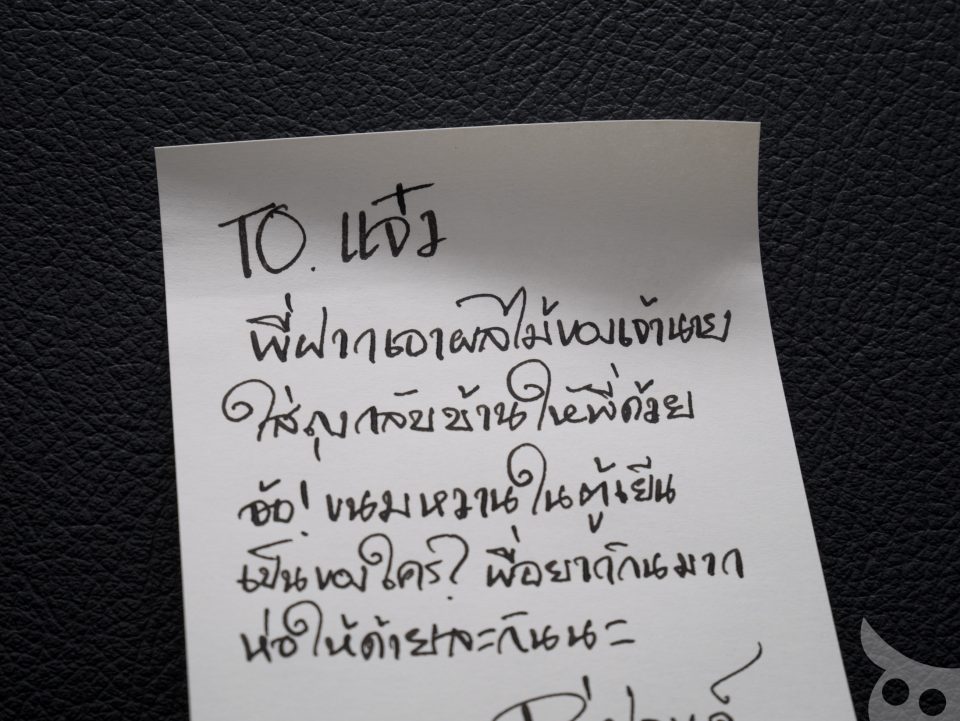 TO. แจ๋ว
พี่ฝากเอาผลไม้ของเจ้านาย
ใส่ถุงกลับบ้านให้พี่ด้วย
อ้อ! ขนมหวานในตู้เย็น
เป็นของใคร? พี่อยากกินมาก
ห่อให้ด้วยละกันนะ